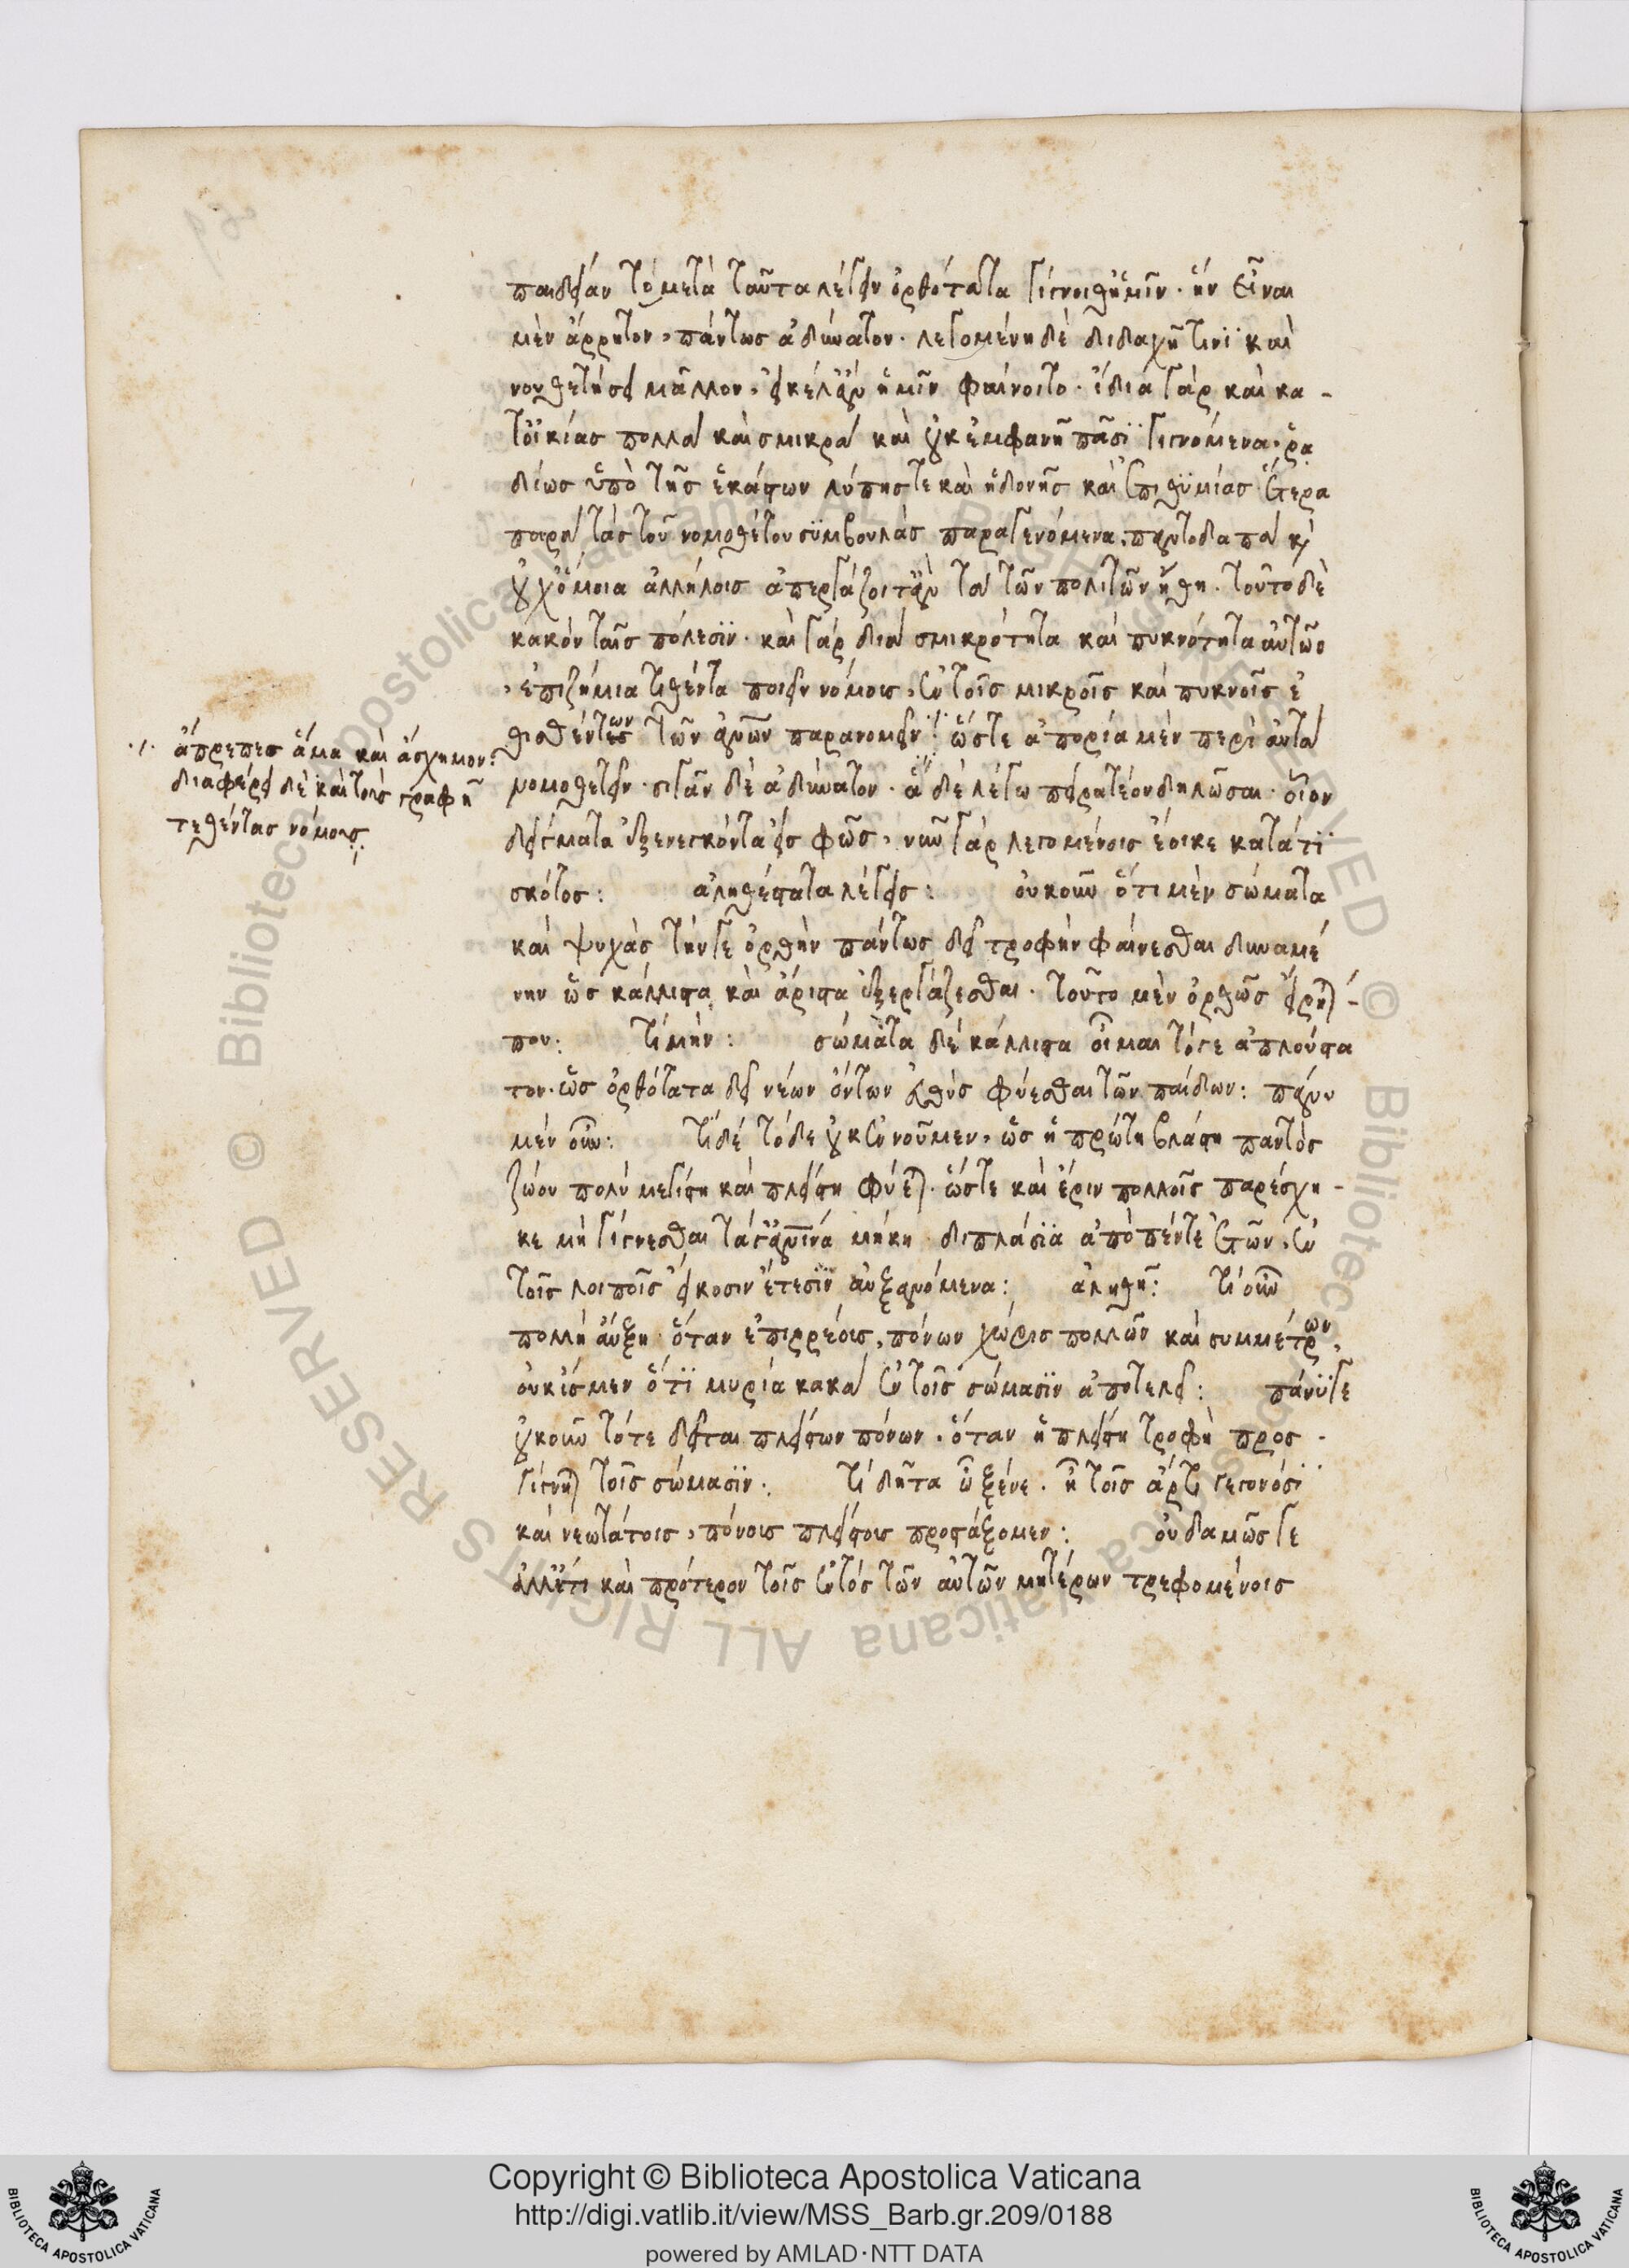 παιδείαν τὸ μετὰ ταῦτα λέγειν ὀρθότατα γίγνοιθ' ἡμῖν· ἣν εἶναι
μὲν ἄρρητον, πάντως ἀδύνατον· λεγομένη δὲ διδαχῆ τινὶ καὶ
νουθετήσει μᾶλλον, εἰκέλ' ἂν ἡμῖν φαίνοιτο· ἰδία γὰρ καὶ κα-
τοἰκίας πολλὰ καὶ σμικρὰ καὶ οὐκ ἐμφανῆ πᾶσι γιγνόμενα· ῥα
δίως ὑπὸ τῆς ἑκάστων λύπης τε καὶ ἡδονῆς καὶ ἐπιθυμίας ἕτερα
παρὰ τὰς τοῦ νομοθέτου συμβουλὰς παραγενόμενα, παντοδαπὰ καὶ
οὐχ ὅμοια ἀλλήλοις ἀπεργάζοιτ' ἂν τὰ τῶν πολιτῶν ἤθη· τοῦτο δὲ
κακὸν ταῖς πόλεσιν· καὶ γὰρ διὰ σμικρότητα καὶ πυκνότητα αὐτῶν
, ἐπιζήμια τιθέντα ποιεῖν νόμοις, ἐν τοῖς μικροῖς καὶ πυκνοῖς ἐ
θισθέντων τῶν ἀνῶν παρανομεῖν· ὥστε ἀπορία μὲν περὶ αὐτὰ
νομοθετεῖν· σιγᾶν δὲ ἀδύνατον· ἃ δὲ λέγω πειρατέον δηλῶσαι· οἷον
δείγματα ἐξενεγκόντα εἰς φῶς, νῦν γὰρ λεγομένοις ἔοικε κατά τι
σκότος: ἀληθέστατα λέγεις: οὐκοῦν ὅτι μὲν σώματα
καὶ ψυχὰς τήν γε ὀρθὴν πάντως δεῖ τροφὴν φαίνεσθαι δυναμέ
νην ὡς κάλλιστα καὶ ἄριστα ἐξεργάζεσθαι· τοῦτο μὲν ὀρθῶς εἴρηται -
που: τί μήν: σώματα δὲ κάλλιστα οἶμαι τό γε ἁπλούστα
τον· ὡς ὀρθότατα δεῖ νέων ὄντων εὐθὺς φύεσθαι τῶν παίδων: πάνυ
μὲν οὖν: τί δὲ τόδε οὐκ ἐννοοῦμεν, ὡς ἡ πρώτη βλάστη παντὸς
ζώου πολὺ μεγίστη καὶ πλείστη φύεται· ὥστε καὶ ἔριν πολλοῖς παρέσχη -
κε μὴ γίγνεσθαι τά γ' ἀνινά μήκη διπλάσια ἀπὸ πέντε ἐτῶν, ἐν
τοῖς λοιποῖς εἴκοσιν ἔτεσιν αὐξανόμενα: ἀληθῆ: τί οὖν
πολλὴ αὔξη ὅταν ἐπιρρέοις, πόνων χωρὶς πολλῶν καὶ συμμέτρων,
οὐκ ἴσμεν ὅτι μυρία κακὰ ἐν τοῖς σώμασιν ἀποτελεῖ: πάνυ γε
οὐκοῦν τότε δεῖται πλείστων πόνων, ὅταν ἡ πλείστη τροφὴ προσ -
γίγνηται τοῖς σώμασιν: τί δῆτα ὦ ξένε· ἦ τοῖς ἄρτι γεγονόσι
καὶ νεωτάτοις, πόνοις πλείστοις προστάξομεν: οὐδαμῶς γε
ἀλλ' ἔτι καὶ πρότερον τοῖς ἐντὸς τῶν αὐτῶν μητέρων τρεφομένοις
ἀπρεπὲς ἅμα καὶ ἄσχημον:
διαφέρει δὲ καὶ τοὺς γραφῆ
τεθέντας νόμους
Copyright © Biblioteca Apostolica Vaticana
http://digi.vatlib.it/view/MSS_Barb.gr.209/0188
powered by AMLAD·NTT DATA
BIBLIOTECA APOSTOLICA VATICANA
BIBLIOTECA APOSTOLICA VATICANA